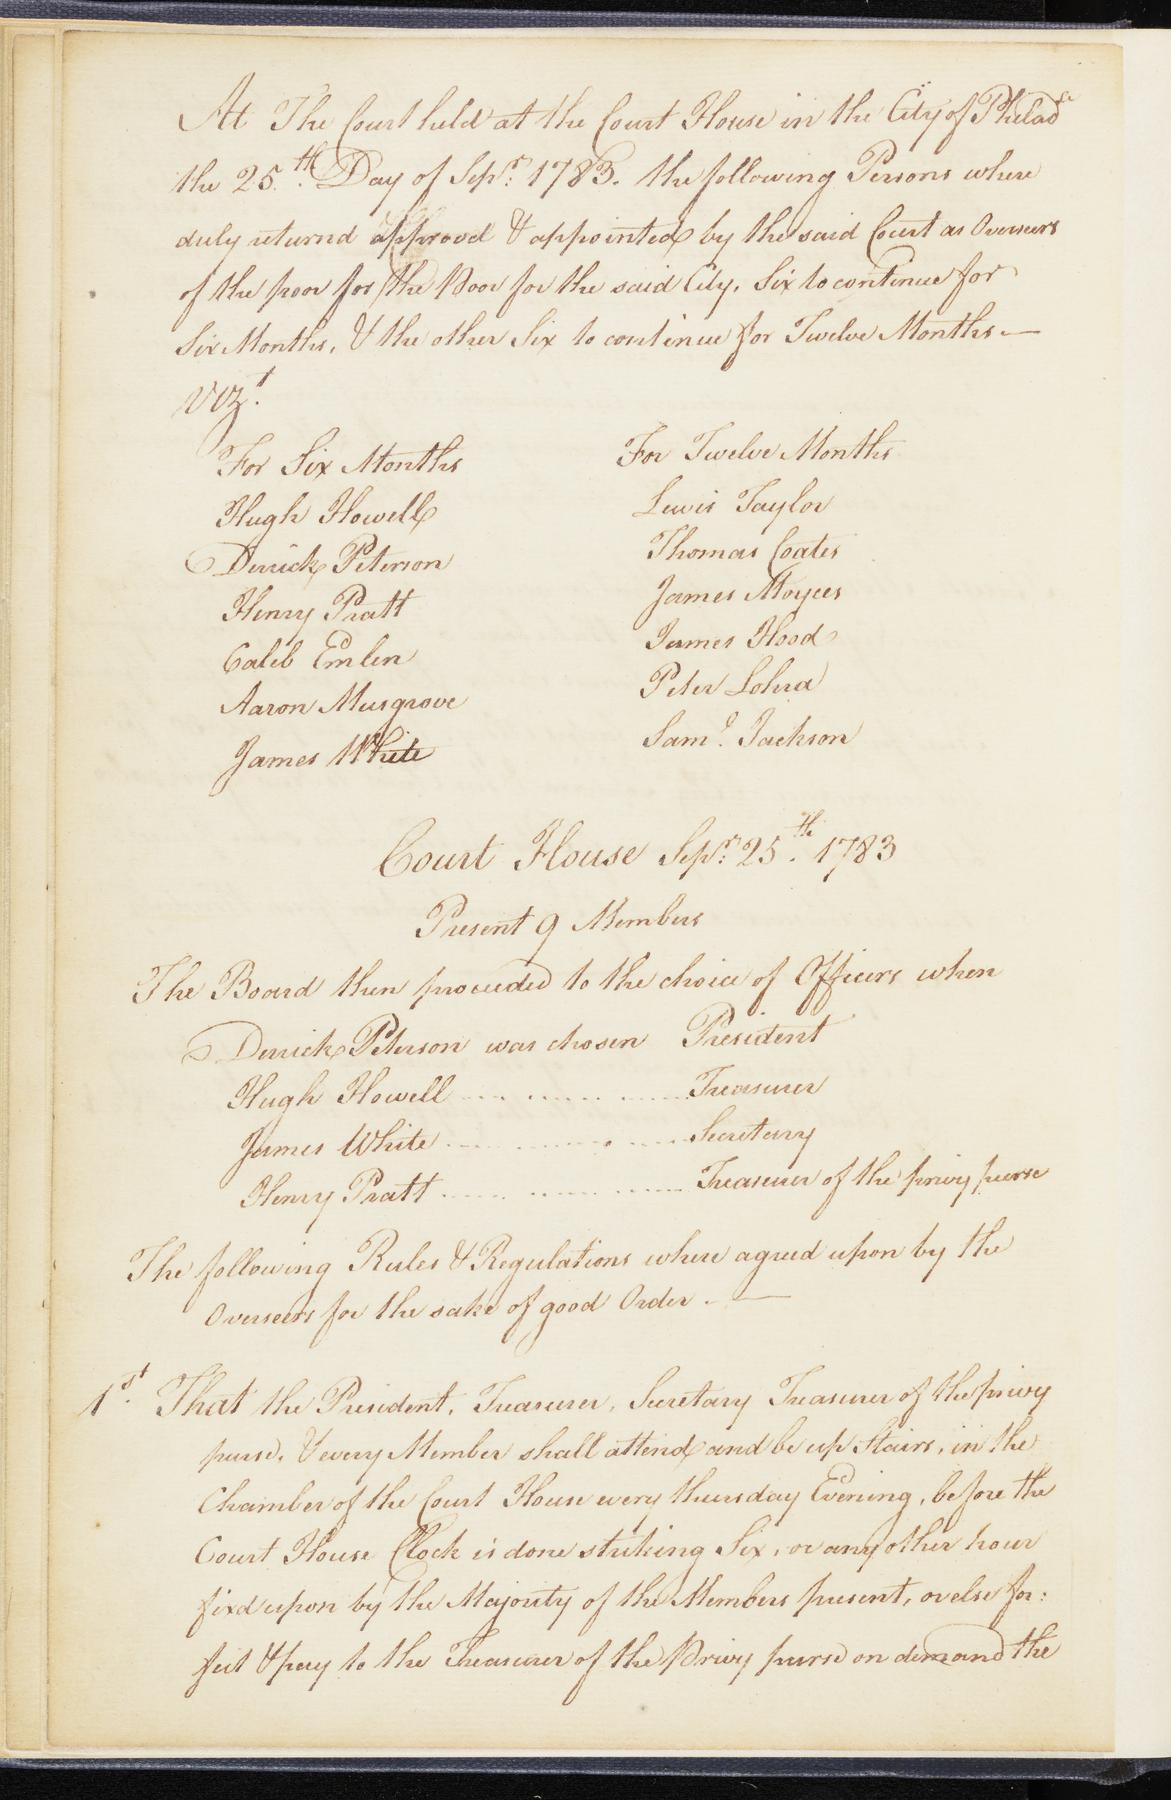 At The Court held at the Court House in the City of Philada
the 25.th Day of Sepr. 1783. the following Persons where
duly returnd approvd & appointed by the said Court as Overseers
of the poor for the Poor for the said City, Six to continue for
Six Months, & the other Six to continue for Twelve Months.—
Vizt.
For Six Months
Hugh Howell
Derrick Peterson
Henry Pratt
Caleb Emlen
Aaron Musgrove
James White
For Twelve Months
Lewis Taylor
Thomas Coates
James Moyces
James Hood
Peter Lohra
Saml. Jackson
Court House Sepr. 25th. 1783
Present 9 Members
The Board then proceeded to the choice of Officers when
Derrick Peterson was chosen President
Hugh Howell .... ...... ...... Treasurer
James White .... ...... ...... Secretary
Henry Pratt ...... ...... ...... Treasurer of the privy purse
The following Rules & Regulations where agreed upon by the
Overseers for the sake of good Order. —
1st. That the President, Treasurer, Secretary Treasurer of the privy
purse, & every Member shall attend and be up Stairs, in the
Chamber of the Court House every thursday Evening, before the
Court House Clock is done striking Six, or any other hour
fixd upon by the Majority of the Members present, or else for:
feit & pay to the Treasurer of the Privy purse on demand the